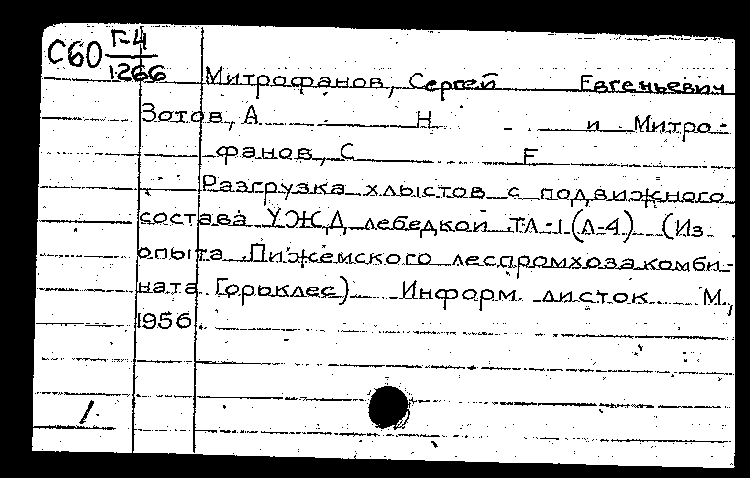 С60 Г-4
1266
Митрофанов, Сергей Евгеньевич
Зотов, А Н и Митро-
фанов, С Е
Разгрузка хлыстов с подвижного
состава УЖД лебедкой ТЛ-1 (Л-4) (Из
опыта Пижемского леспромхоза комби-
ната Горьклес) Информ. листок М,
1956.
1